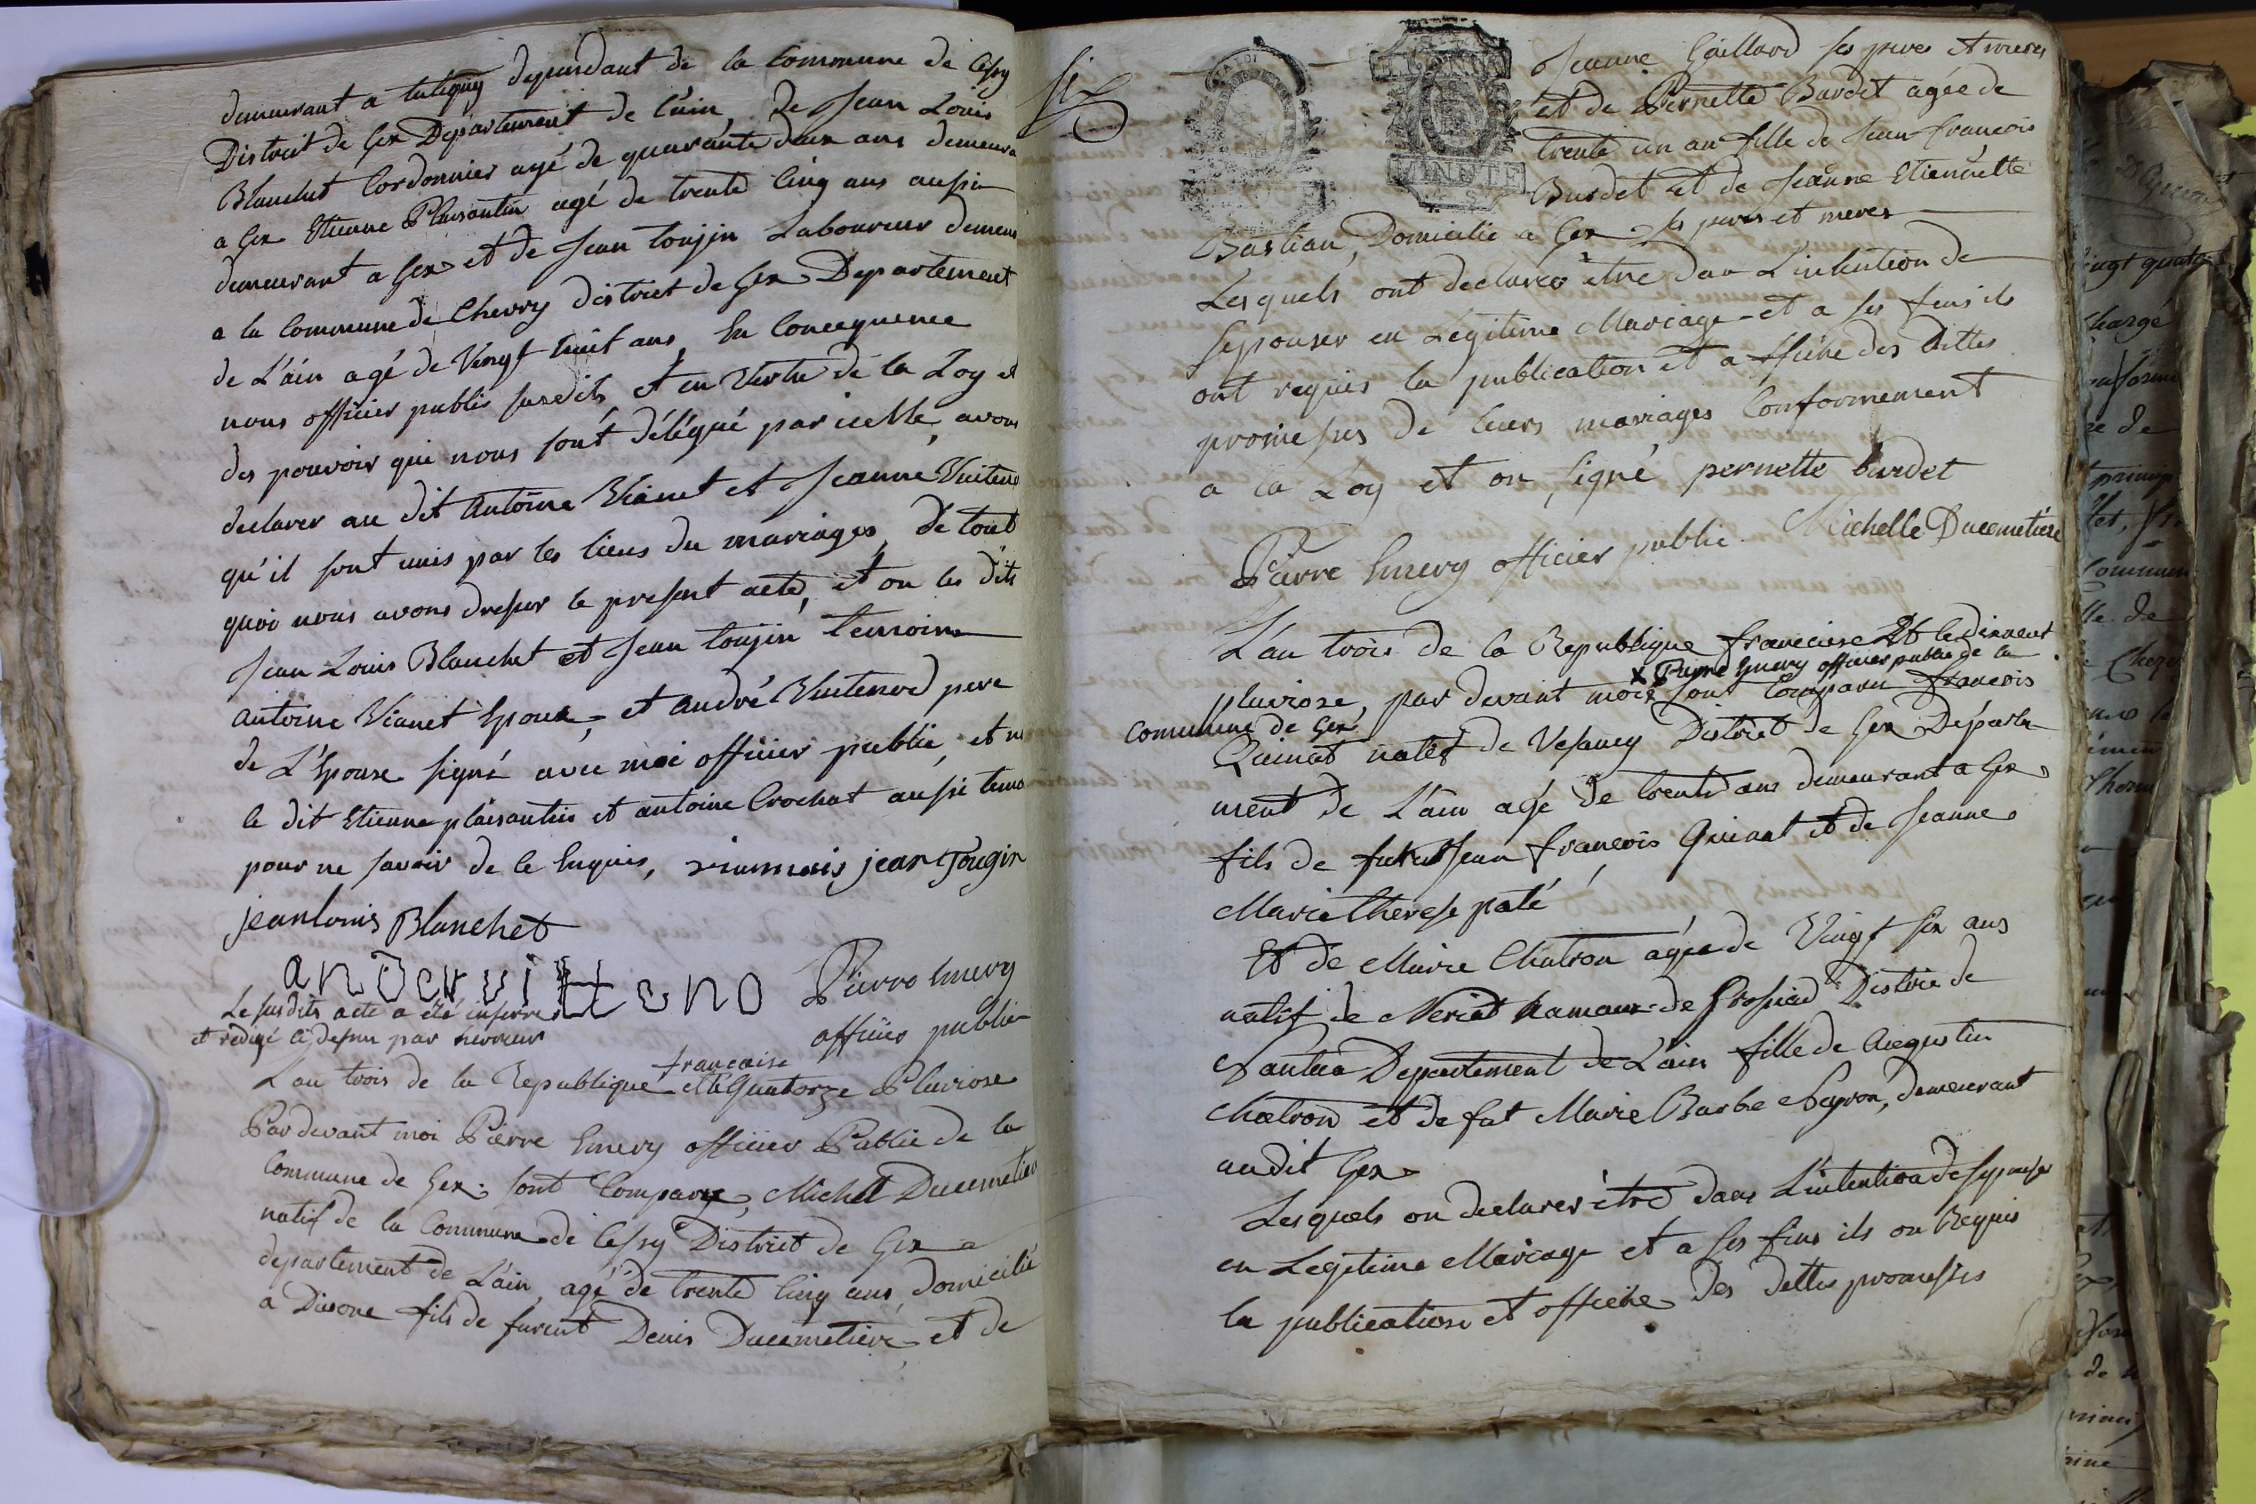 demeurant a tutegny dependant de la Commune de Cessy
District de Gex Departement de l'ain, de Jean Louis
Blanchet Cordonnier agé de quarante deux ans demeura
a Gex Etienne Plaisantin agé de trente Cinq ans aussi
demeurant a Gex et de Jean toujin Laboureur demeu
a la Commune de Chevry district de Gex Departement
de L'ain agé de Vingt huit ans, En Concequence
nous officier public susdits, et en Vertu de la Loy et
des pouvoir qui nous sont délégué par icelle, avons
declarer au dit Antoine Vianet et Jeanne Vuiteno
qu'il sont unis par les liens du mariages, de tout
quoi nous avons dresser le present acte, et on les dits
Jean Louis Blanchet et Jean toujin temoins
Antoine Vianet Epoux, et André Vuitenod pere
de L'Epouse signé avec moi officier public, et n
le dit Etienne plaisantin et antoine Crochat aussi temo
pour ne savoir de ce Enquis, jean Tougin
jeanlouis Blanchet
Pierre Emery
officier public
Le susdits acte a été inserre
et redigé ci dessu par herreur
L'an trois de la Republique française et le Quatorze Pluviose
Par devant moi Pierre Emery officier Public de la
Commune de Gex. sont Comparu, Michel Ducemetier
natif de la Commune de Cessy District de Gex
departement de L'ain, agé de trente Cinq ans, domicilié
a Divone fils de furent Denis Ducemetiere et de
six
Jeanne Gaillard ses peres et meres
et de Pernette Burdet agée de
trente un an fille de Jean francois
Burdet et de Jeanne Etiennette
Bastian, Domicilie a Gex ses peres et meres
Lesquels ont declarer être dan L'intention de
sepouser en Légitime Mariage et a ses fins ils
ont requis la publication et affiche des dittes
promesses de leurs mariages Conformement
a la Loy et on signé pernette burdet
Michelle Ducemetiere
Pierre Emery officier public
L'an trois de la Republique francaise Et le
x Pierre Emery officier public de la
pluviose, par devant moi x sont Comparu francois
commune de Gex
Quinat natif de Vesancy District de Gex Départe
ment de L'ain agé de trente ans demeurant a Gex
fils de Jean francois Quinat et de Jeanne
Marie therese paté
Et de Marie Chatron agée de Vingt six ans
natif de Neriat hamaux de Grossiad District de
Nantua Departement de L'ain fille de Augustin
Chatron et de fut Marie Barbe Neyron, demeurant
audit Gex
Lesquels on declarer être dans L'intention de sepouser
en Legitime Mariage et a ses fins ils on Requis
la publication et affiche des dettes promesses